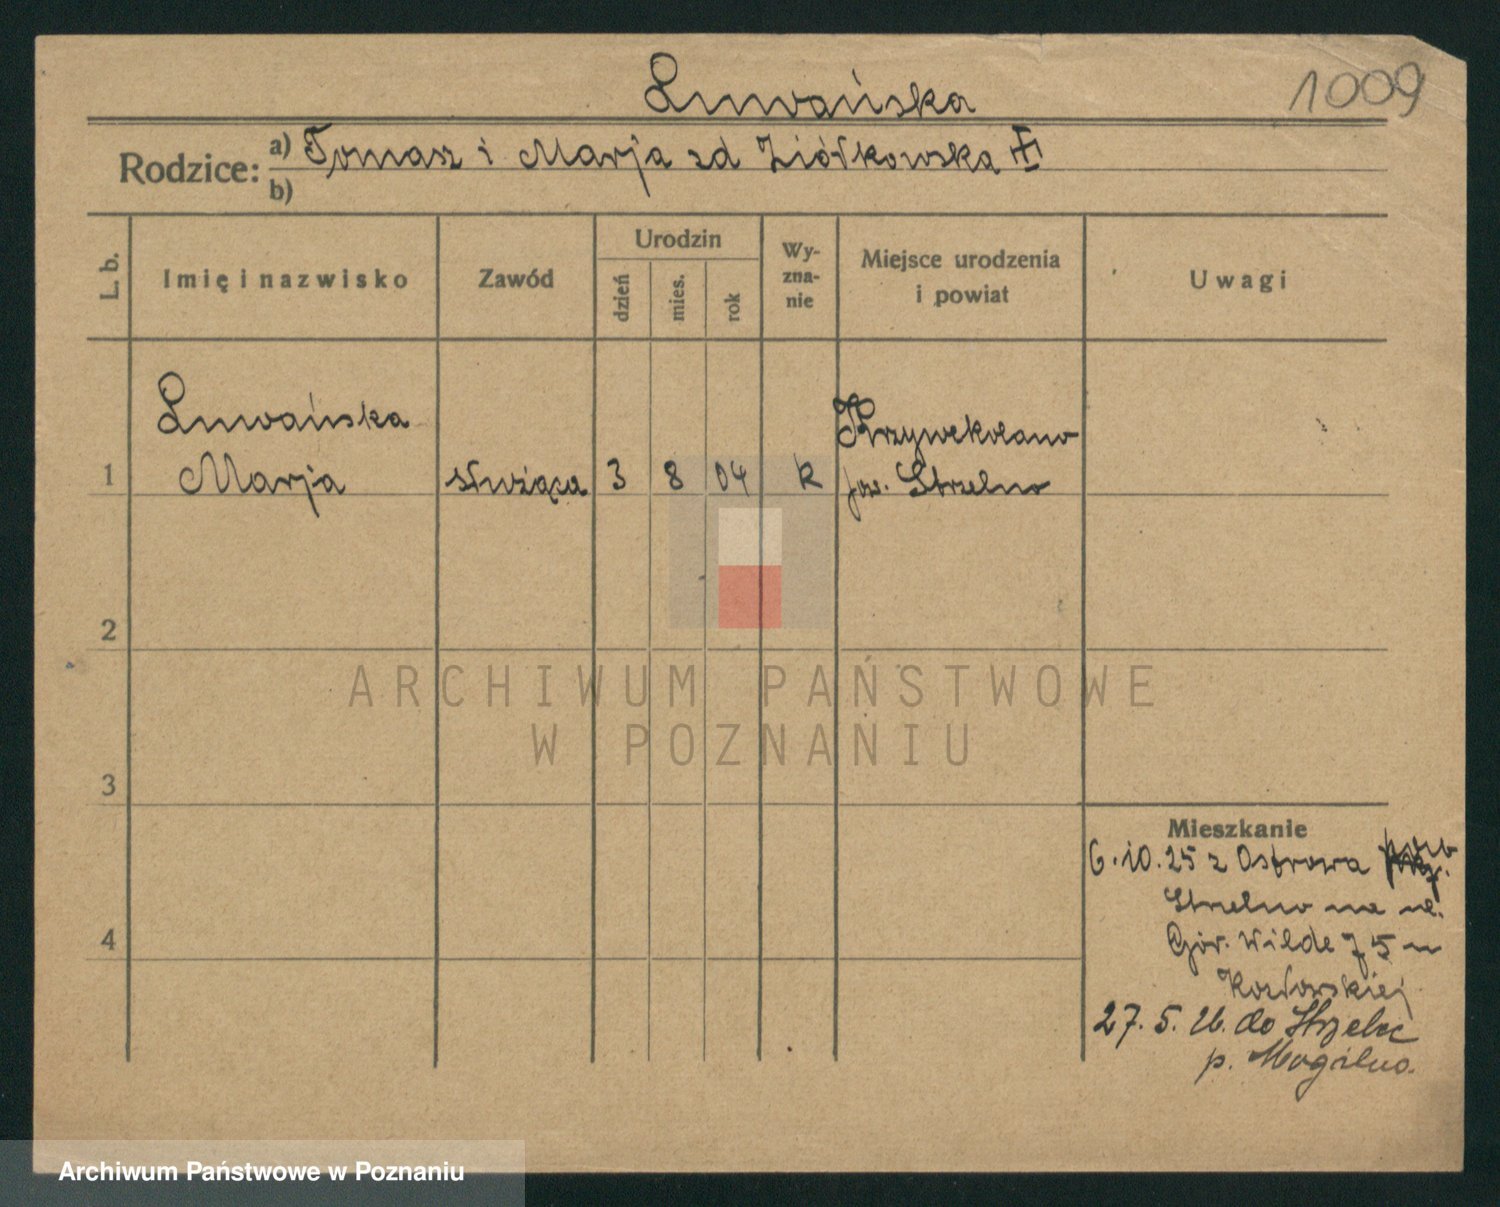 Luwańska
1009
Rodzice: a) Tomasz i Marja zd Ziółkowska
b)
L. b.
Imię i nazwisko
Zawód
Urodzin
dzień
mies.
rok
Wy-
zna-
nie
Miejsce urodzenia
i powiat
Uwagi
1
Luwańska
Marja
służąca
3
8
04
k
Krzywekolano
pow. Strzelno
2
3
4
Mieszkanie
6.10.25 z Ostrowa pow
Strzelno na ul.
Gór. Wilde 75 u
Kozłowskiej
27.5.26. do Strzelec
p. Mogilno.
ARCHIWUM PAŃSTWOWE
W POZNANIU
Archiwum Państwowe w Poznaniu